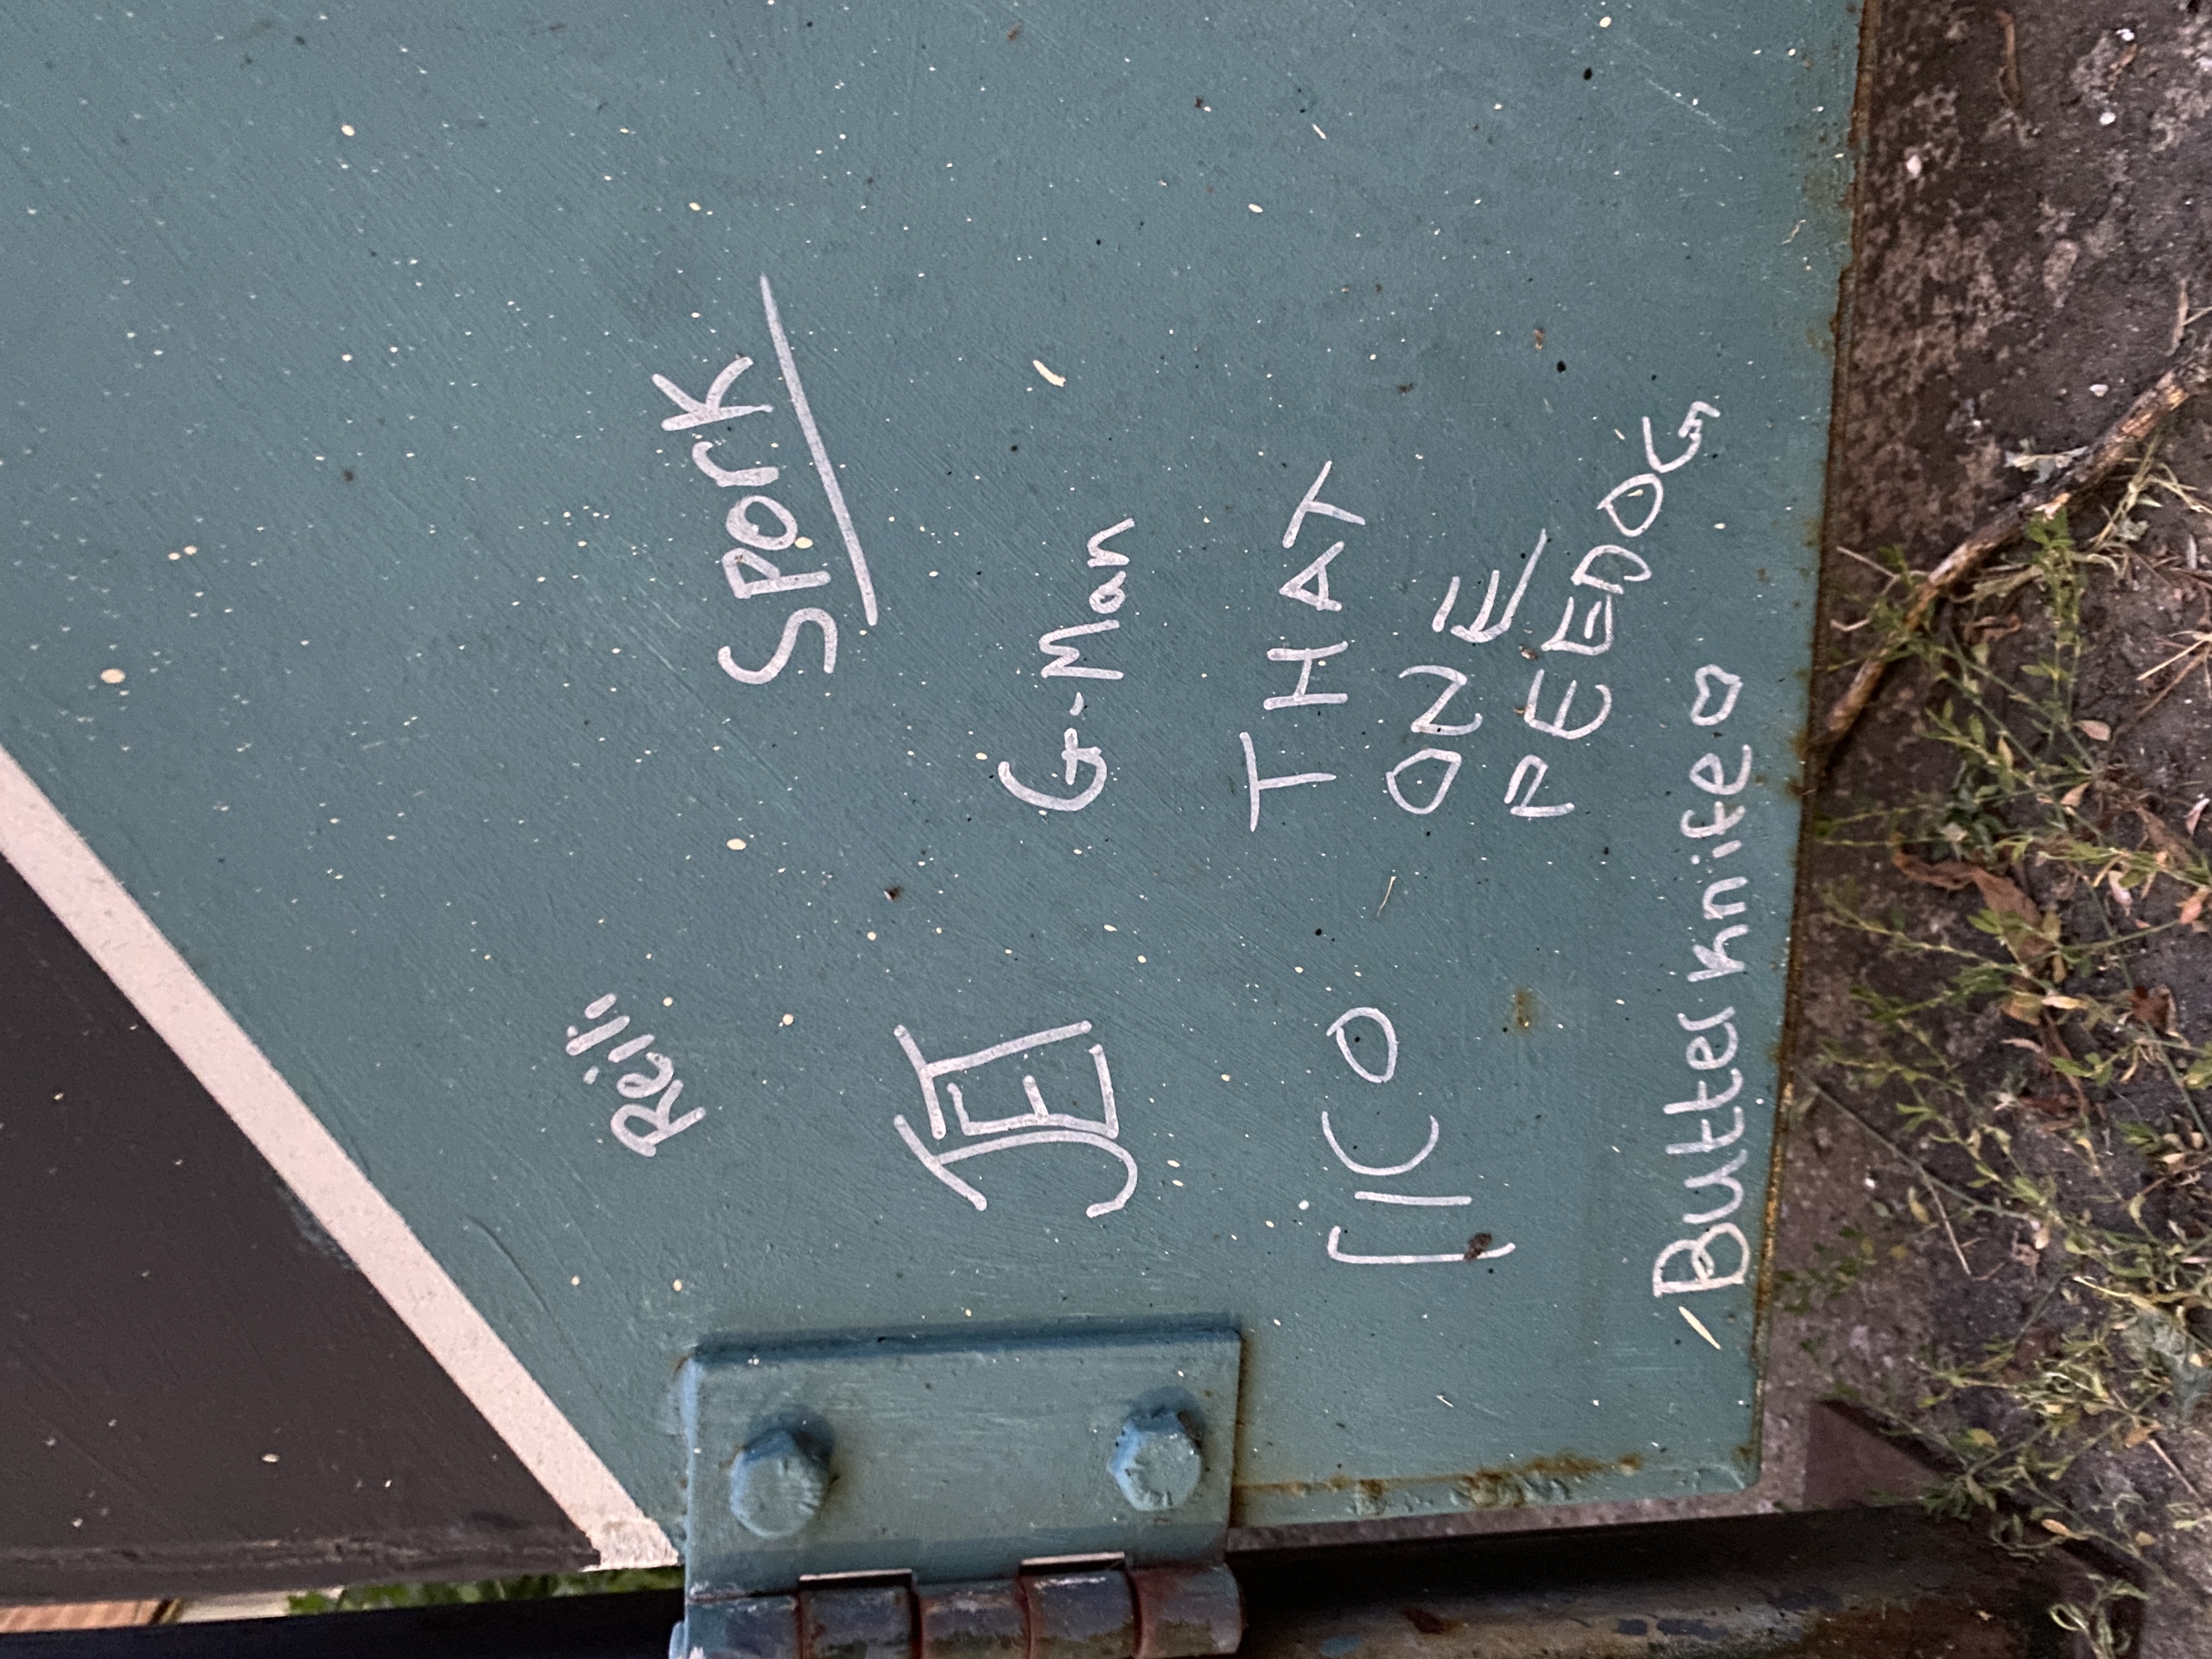 Reili
SporK
JET
G-Man
THAT
rICO
ONE
PEEDOG
Butter knife♡